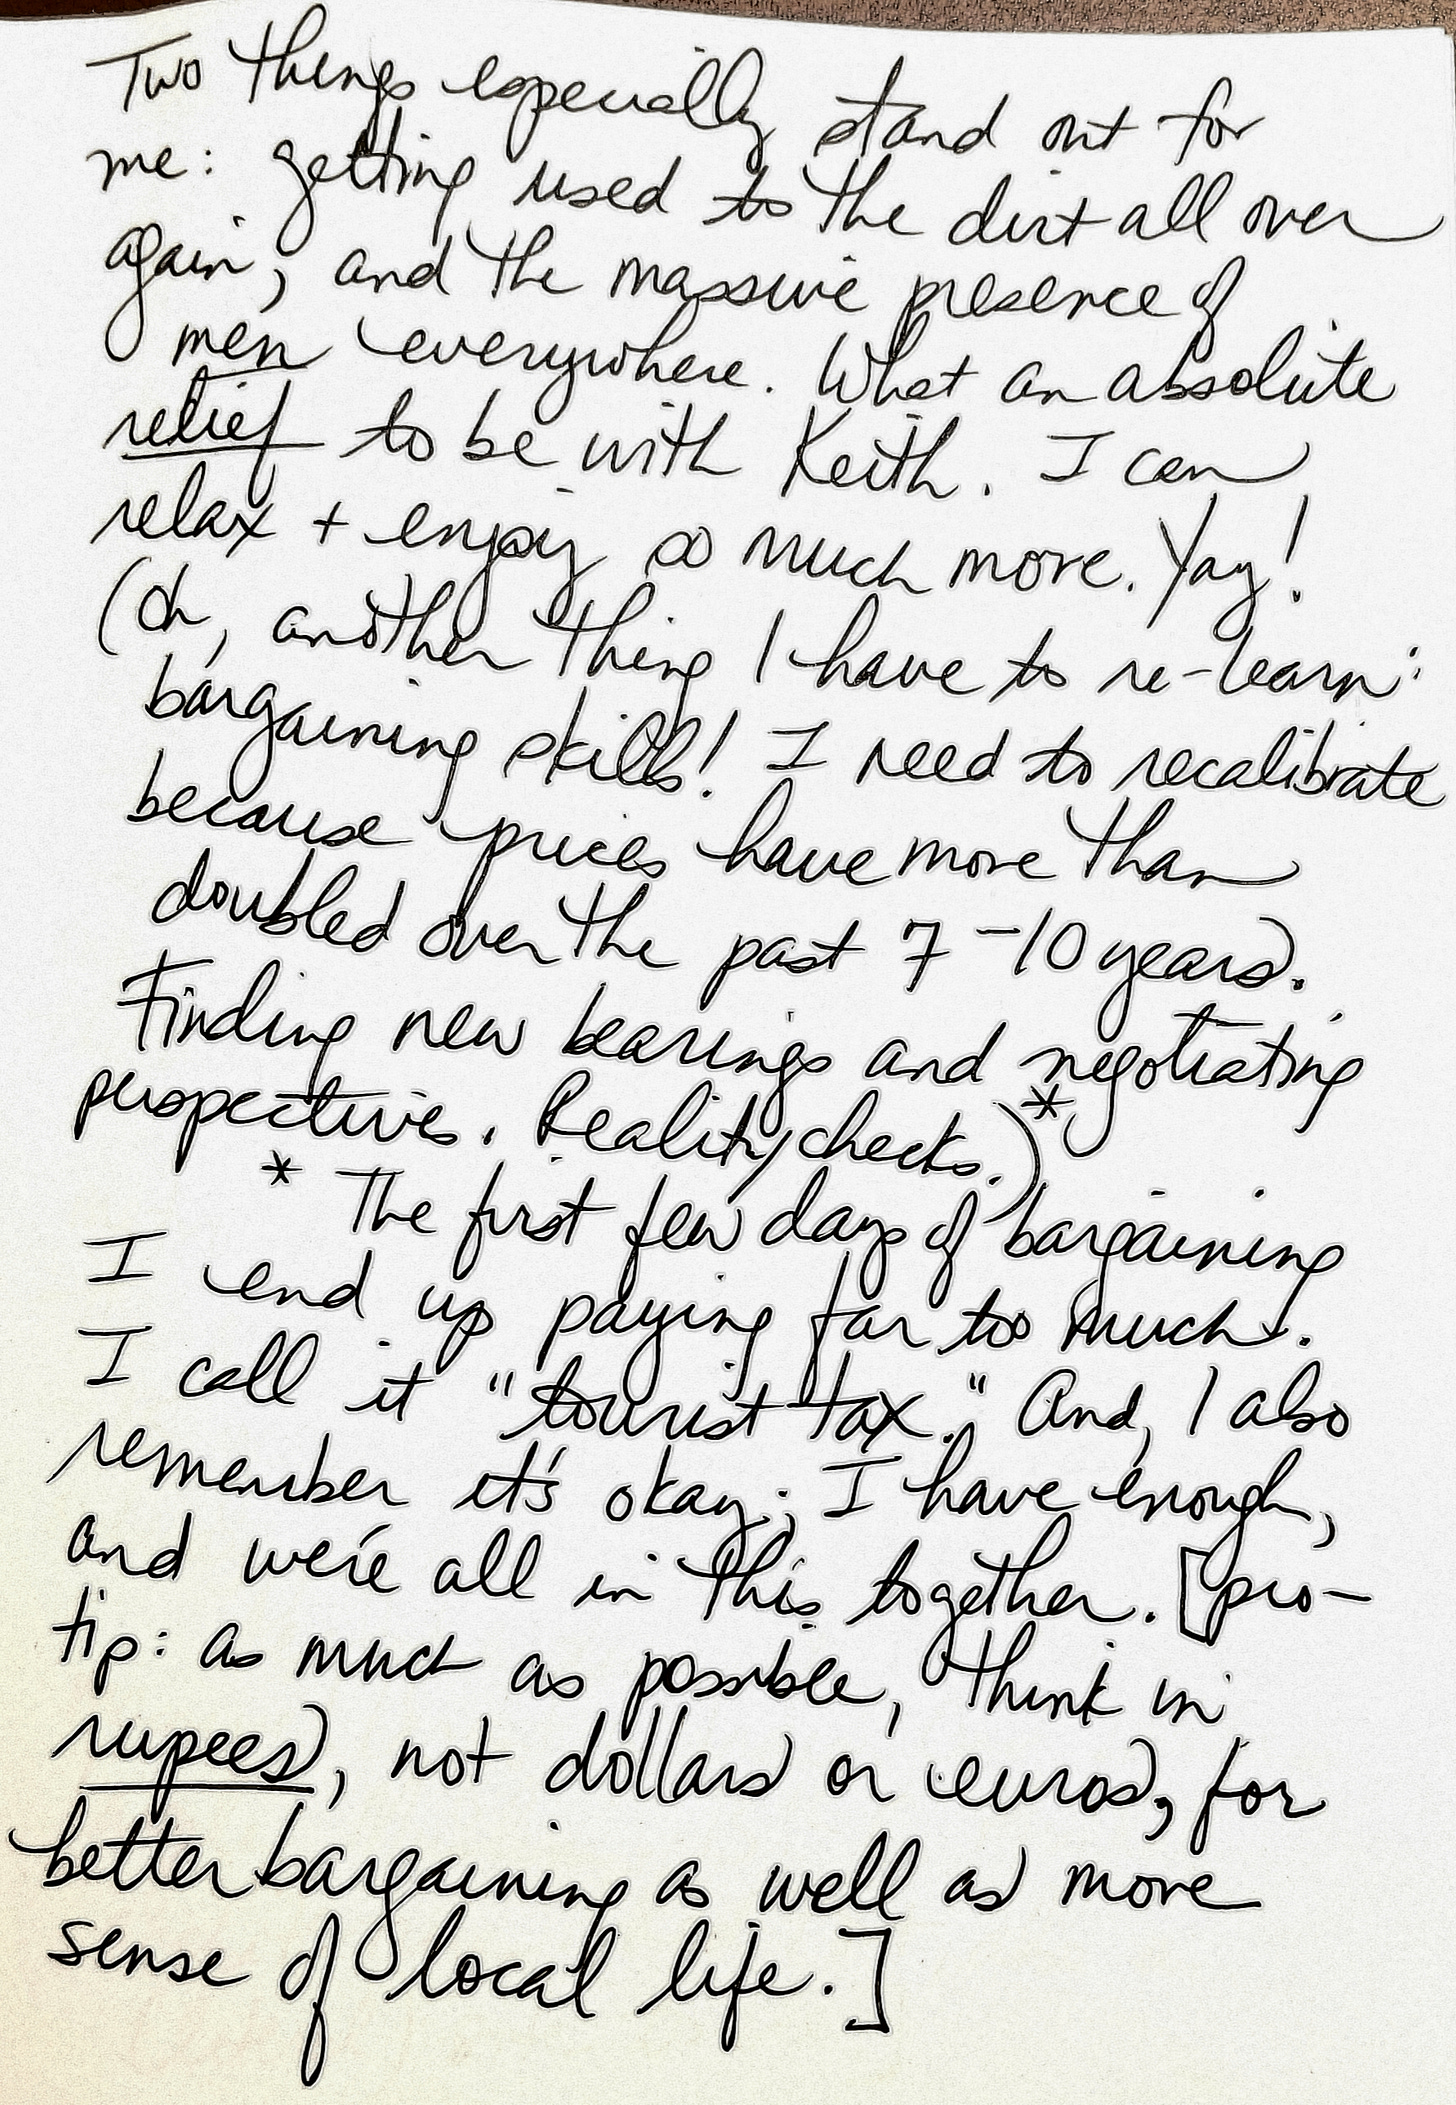 Two things especially stand out for
me: getting used to the dirt all over
again, and the massive presence of
men everywhere. What an absolute
relief to be with Keith. I can
relax + enjoy so much more. Yay!
(Oh, another thing I have to re-learn:
bargaining skills! I need to recalibrate
because prices have more than
doubled over the past 7-10 years.
Finding new bearings and negotiating
perspective. Reality checks.)*
* The first few days of bargaining
I end up paying far too much.
I call it "tourist tax." And, I also
remember it's okay; I have enough,
and we're all in this together. [pro-
tip: as much as possible, think in
rupees, not dollars or euros, for
better bargaining as well as more
sense of local life.]